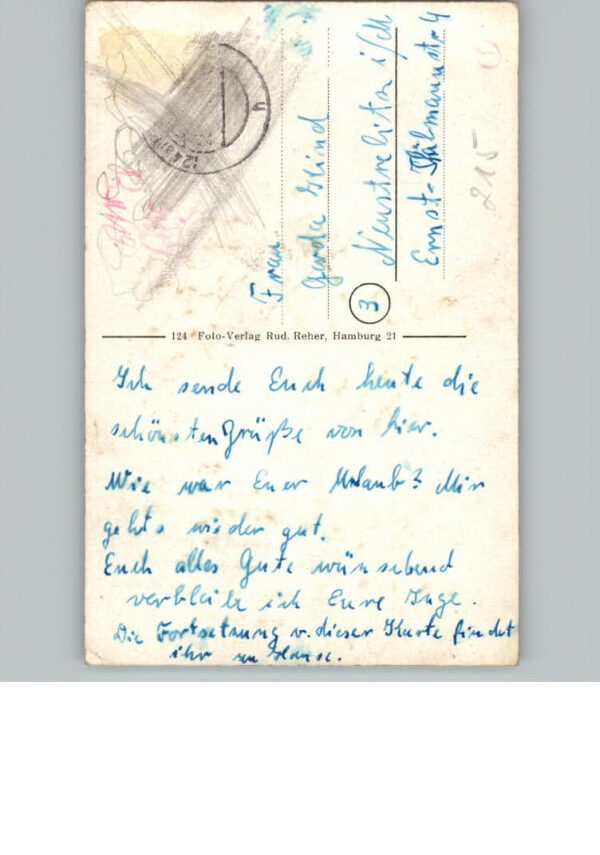 Frau
Gerda
3 Neustrelitz i/M
Ernst-Thälmannstr 4
215
124 Foto-Verlag Rud. Reher, Hamburg 21
Ich sende Euch heute die
schönsten Grüße von hier.
Wie war Euer Urlaub? Mir
gehts wieder gut.
Euch alles Gute wünschend
verbleibe ich Eure Inge.
Die Fortsetzung v. dieser Karte findet
ihr zu Hause.